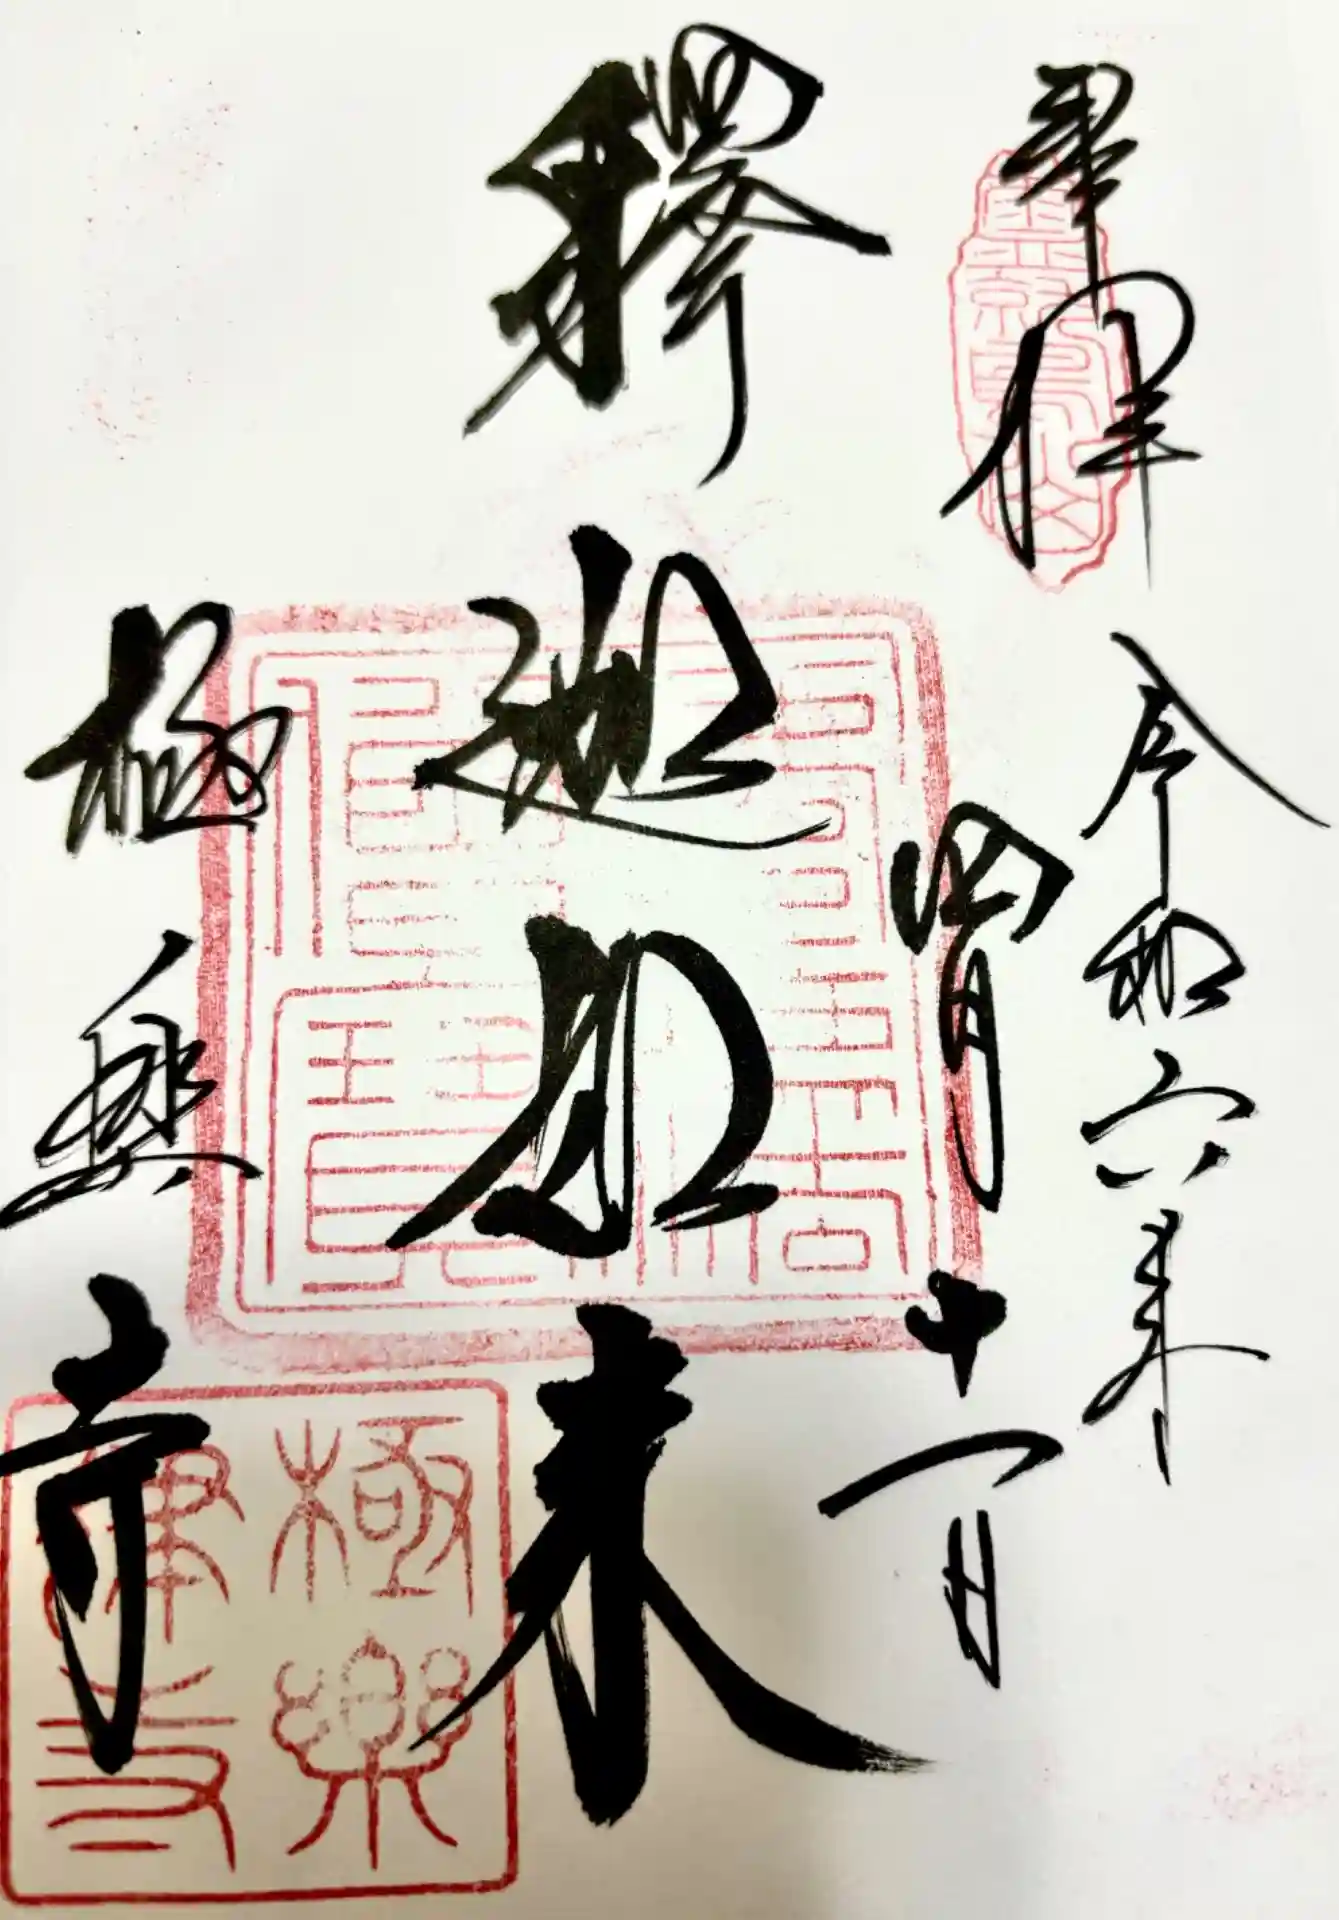 奉拝
令和六年
四月十一日
釋迦如来
極樂寺
極樂
律寺